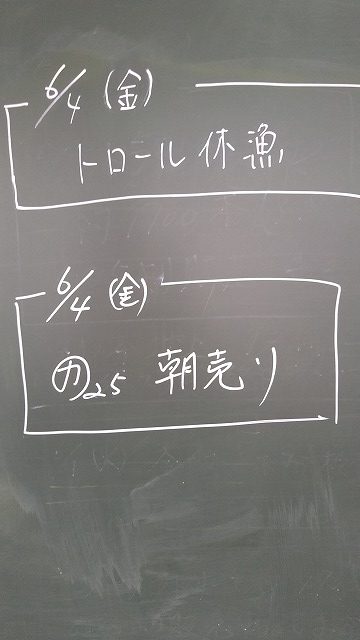 6/4 (金)
トロール休漁
6/4 (金)
㋕25 朝売り